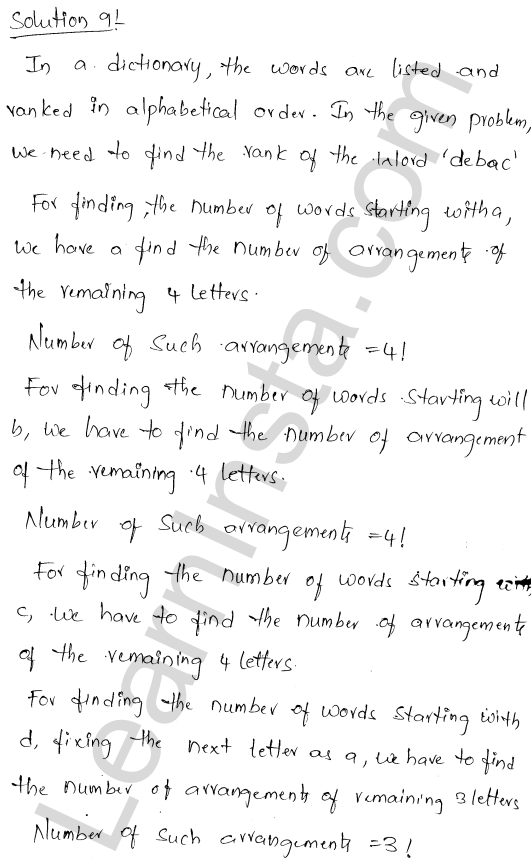 Solution 9:-
In a dictionary, the words are listed and
ranked in alphabetical order. In the given problem,
we need to find the rank of the word 'debac'
For finding, the number of words starting with a,
we have a find the number of arrangements of
the remaining 4 letters.
Number of such arrangements = 4!
For finding the number of words starting will
b, we have to find the number of arrangement
of the remaining 4 letters.
Number of such arrangements = 4!
For finding the number of words starting with
c, we have to find the number of arrangements
of the remaining 4 letters.
For finding the number of words starting with
d, fixing the next letter as a, we have to find
the number of arrangements of remaining 3 letters
Number of such arrangements = 3!
LearnInsta.com